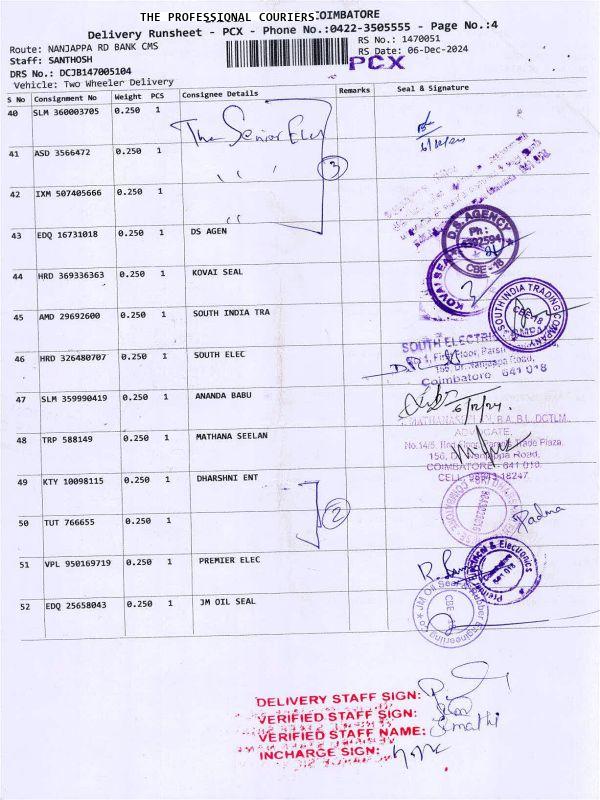 THE PROFESSIONAL COURIERS COIMBATORE
Delivery Runsheet - PCX - Phone No.:0422-3505555 - Page No.:4
Route: NANJAPPA RD BANK CMS
RS No.: 1470051
Staff: SANTHOSH
RS Date: 06-Dec-2024
DRS No.: DCJB147005104
PCX
Vehicle: Two Wheeler Delivery
S No Consignment No Weight PCS Consignee Details Remarks Seal & Signature
40 SLM 360003705 0.250 1 The Senior Elec
41 ASD 3566472 0.250 1 ,,
3
42 IXM 507405666 0.250 1 ,,
43 EDQ 16731018 0.250 1 DS AGEN
D.S. AGENCY
Ph:
CBE-18
44 HRD 369336363 0.250 1 KOVAI SEAL
KOVAI SEAL
45 AMD 29692600 0.250 1 SOUTH INDIA TRA
SOUTH INDIA TRADING COMPANY
CBE-18
46 HRD 326480707 0.250 1 SOUTH ELEC
SOUTH ELECTRI
Floor,
Coimbatore 641 018
47 SLM 359990419 0.250 1 ANANDA BABU
6/12/24.
48 TRP 588149 0.250 1 MATHANA SEELAN
B.A, B.L, DCTLM.,
ADVOCATE,
Trade Plaza,
Road,
COIMBATORE - 641 018.
CELL: 98943-18247
49 KTY 10098115 0.250 1 DHARSHNI ENT
50 TUT 766655 0.250 1
2
Padma
51 VPL 950169719 0.250 1 PREMIER ELEC
Electrical & Electronics
52 EDQ 25658043 0.250 1 JM OIL SEAL
JM Oil Seal Rubber Engineering Co
CBE
DELIVERY STAFF SIGN:
VERIFIED STAFF SIGN:
VERIFIED STAFF NAME:
INCHARGE SIGN: